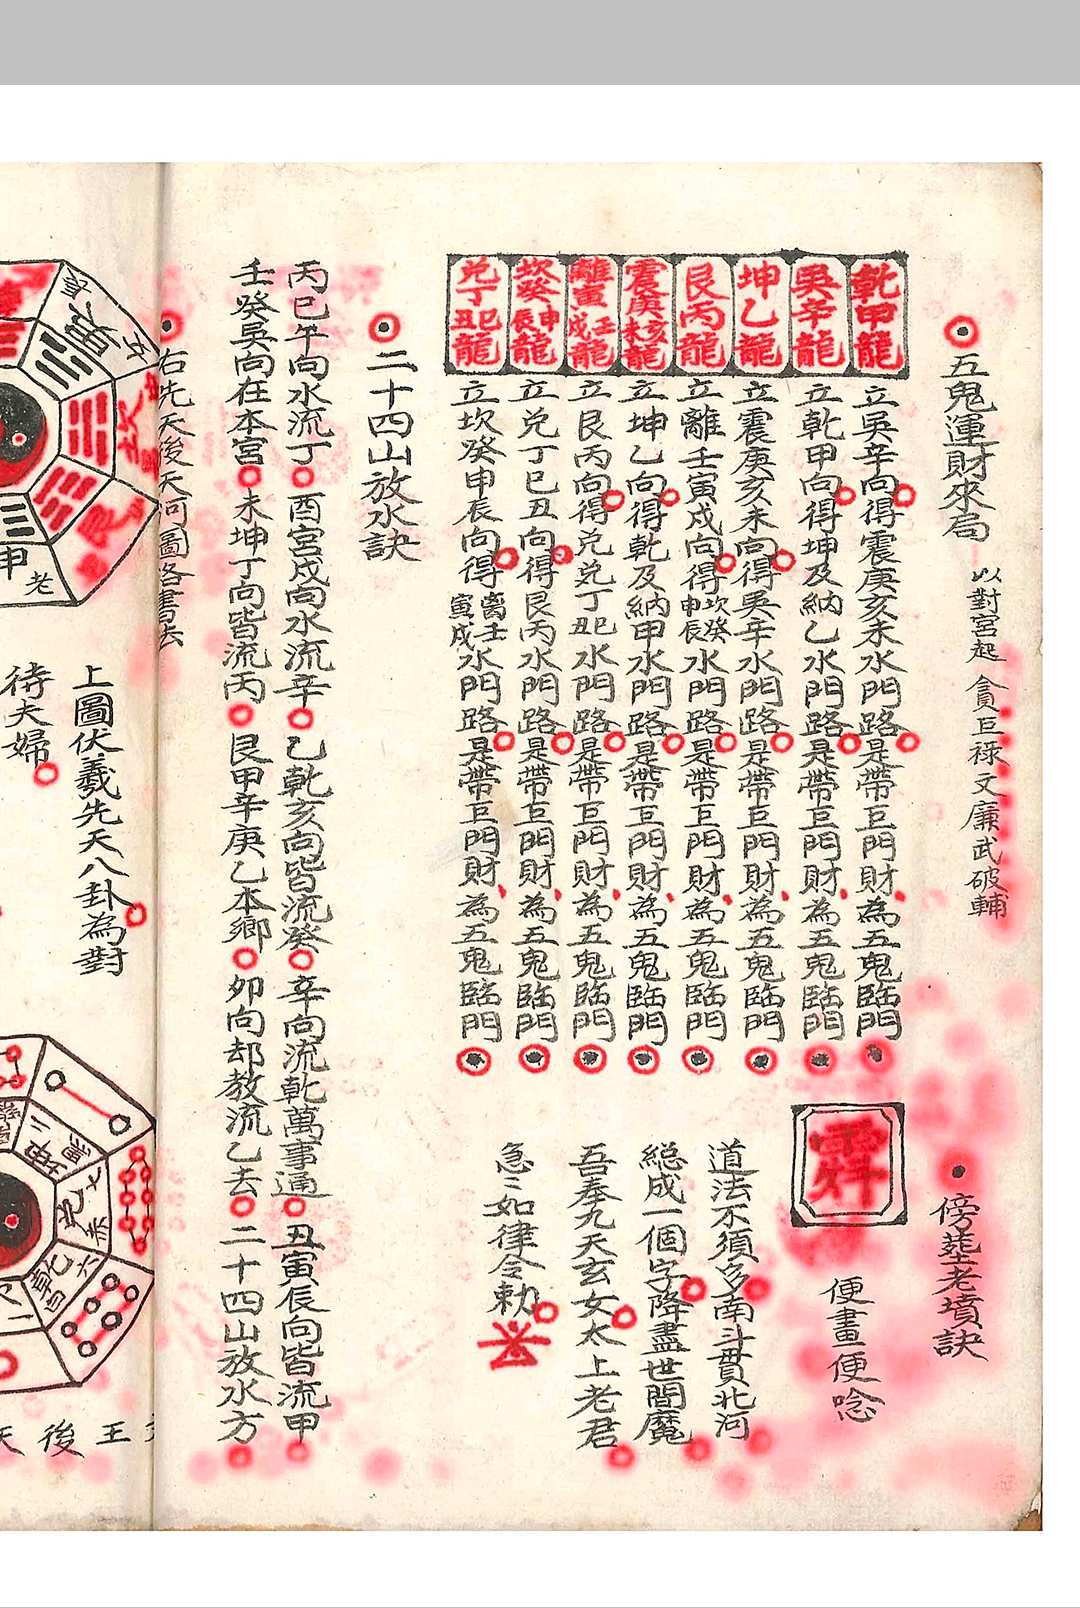 五鬼運財來局 以對宮起 貪巨祿文廉武破輔
乾甲龍 立巽辛向得震庚亥未水門路是帶巨門財為五鬼臨門
巽辛龍 立乾甲向得坤及納乙水門路是帶巨門財為五鬼臨門
坤乙龍 立震庚亥未向得巽辛水門路是帶巨門財為五鬼臨門
艮丙龍 立離壬寅戍向得坎癸申辰水門路是帶巨門財為五鬼臨門
震庚亥未龍 立坤乙向得乾及納甲水門路是帶巨門財為五鬼臨門
離壬寅戍龍 立艮丙向得兌兌丁巳丑水門路是帶巨門財為五鬼臨門
坎癸申辰龍 立兌丁巳丑向得艮丙水門路是帶巨門財為五鬼臨門
兌丁巳丑龍 立坎癸申辰向得离壬寅戍水門路是帶巨門財為五鬼臨門
傍塟老墳訣
便畫便唸
道法不須多南斗貫北河
總成一個字降盡世間魔
吾奉九天玄女太上老君
急〻如律令勅
二十四山放水訣
丙巳午向水流丁 酉宮戍向水流辛 乙乾亥向皆流癸 辛向流乾萬事通 丑寅辰向皆流甲
壬癸巽向在本宮 未坤丁向皆流丙 艮甲辛庚乙本鄉 卯向却教流乙去 二十四山放水方
右先天後天河圖洛書去
上圖伏羲先天八卦為對
待夫婦
申
老
坎
坤
二
黑
兌
七
赤
乾
六
王後天